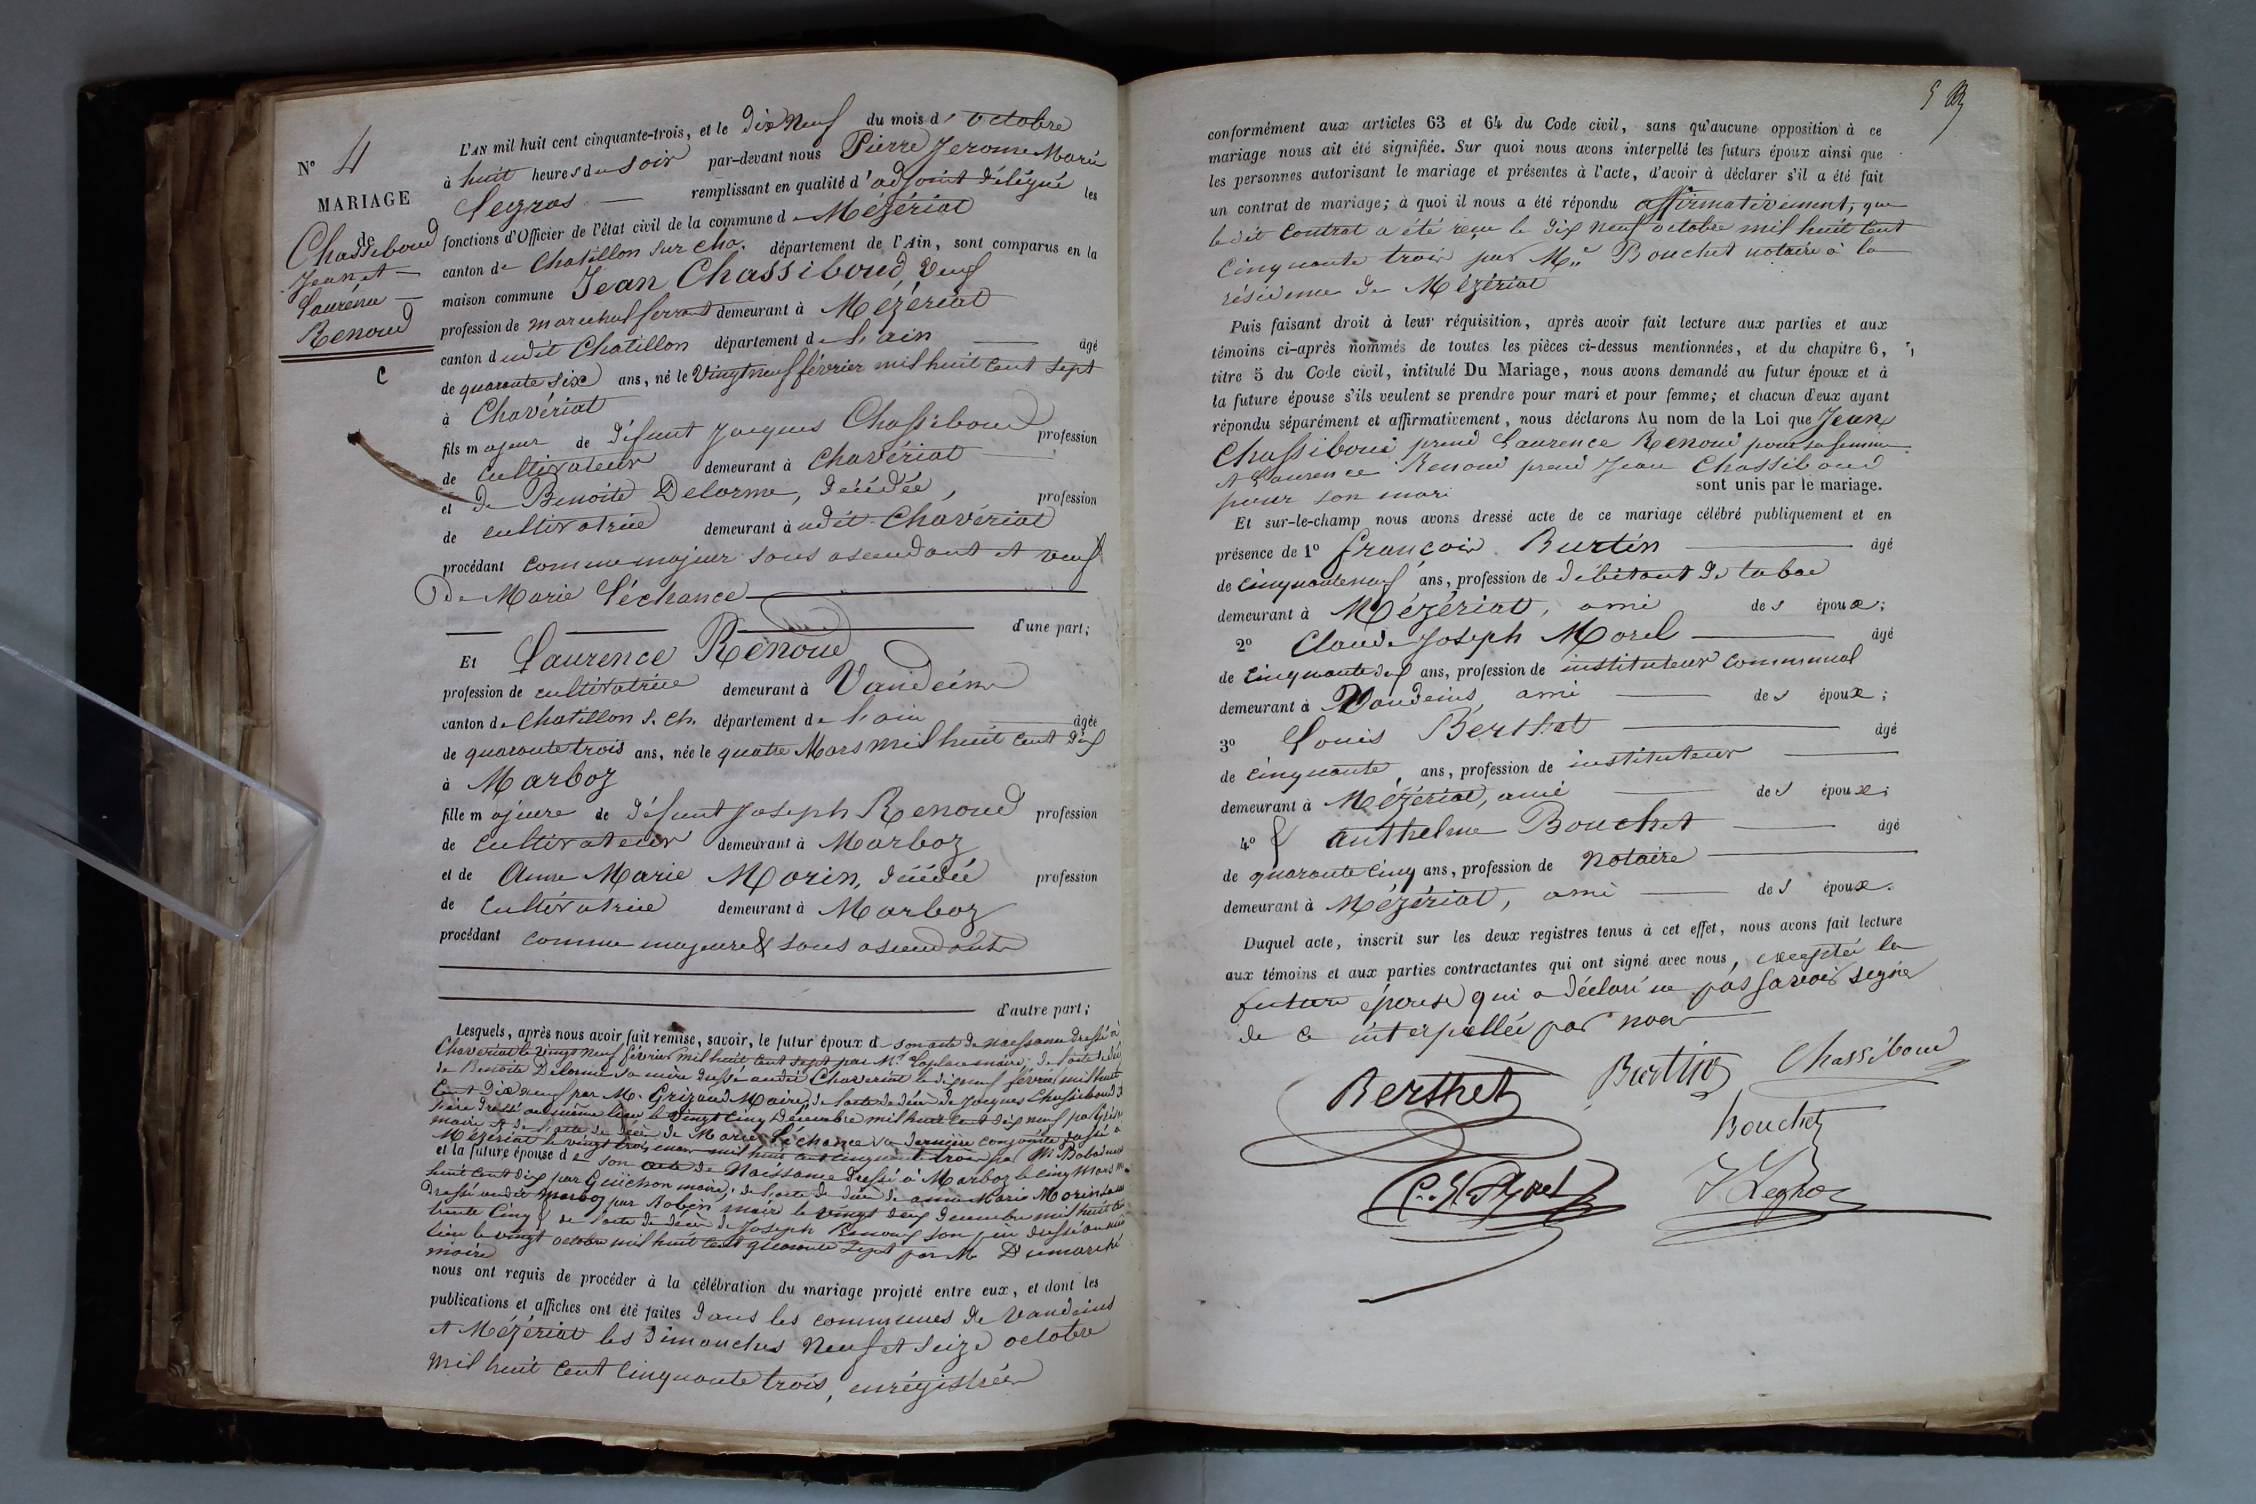 N° 4
MARIAGE
de
Chassiboud
Jean et
Laurence
Renoud
C
L'AN mil huit cent cinquante-trois, et le dix neuf du mois d'octobre
à huit heures du soir par-devant nous Pierre Jerome Marie
Legras remplissant en qualité d'adjoint délégué les
fonctions d'Officier de l'état civil de la commune de Mézériat
canton de Chatillon sur Cha. département de l'Ain, sont comparus en la
maison commune Jean Chassiboud, veuf
profession de marechal ferrant demeurant à Mézériat
canton dudit Chatillon département de l'ain âgé
de quarante six ans, né le vingt neuf février mil huit cent sept
à Chavériat
fils majeur de défunt Jacques Chassiboud profession
de cultivateur demeurant à Chavériat
et de Benoite Delorme, décédée, profession
de cultivatrice demeurant à udit Chavériat
procédant comme majeur sans ascendant et veuf
de Marie Léchance
d'une part;
Et Laurence Renoud
profession de cultivatrice demeurant à Vandeins
canton de Chatillon s. Ch. département de l'ain âgée
de quarante trois ans, née le quatre Mars mil huit cent dix
à Marboz
fille majeure de défunt Joseph Renoud profession
de cultivateur demeurant à Marboz
et de Anne Marie Morin, décédée profession
de cultivatrice demeurant à Marboz
procédant comme majeure & sans ascendants
d'autre part;
Lesquels, après nous avoir fait remise, savoir, le futur époux de son acte de naissance dressé à
Chaveriat le vingt neuf février mil huit cent sept par Mr maire; de l'acte de décès
de Benoite Delorme sa mère dressé audit Chaveriat le dix neuf février mil huit
cent dix neuf par M. Grizaud Maire, de l'acte de décès de Jacques Chassiboud
père dressé au même lieu le vingt cinq Décembre mil huit cent dix neuf par
maire et de l'acte de décès de Marie Léchance sa dernière conjointe passé à
Mézériat le vingt trois mil huit cent cinquante trois par M.
et la future épouse de son acte de Naissance dressé à Marboz le cinq Mars
huit cent dix par Guichon maire; de l'acte de décès de anne Marie Morin
dressé audit Marboz par Robin maire le vingt deux decembre mil huit cent
trente cinq & de l'acte de décès de Joseph Renoud son père dressé au même
lieu le vingt octobre mil huit cent quarante sept par M. Dumarché
maire
nous ont requis de procéder à la célébration du mariage projeté entre eux, et dont les
publications et affiches ont été faites dans les communes de Vandeins
et Mézériat les dimanches neuf et seize octobre
mil huit cent cinquante trois, enrégistrées
conformément aux articles 63 et 64 du Code civil, sans qu'aucune opposition à ce
mariage nous ait été signifiée. Sur quoi nous avons interpellé les futurs époux ainsi que
les personnes autorisant le mariage et présentes à l'acte, d'avoir à déclarer s'il a été fait
un contrat de mariage; à quoi il nous a été répondu affirmativement, que
ledit contrat a été reçu le dix neuf octobre mil huit cent
cinquante trois par Me Bouchet notaire à la
résidence de Mézériat
Puis faisant droit à leur réquisition, après avoir fait lecture aux parties et aux
témoins ci-après nommés de toutes les pièces ci-dessus mentionnées, et du chapitre 6,
titre 5 du Code civil, intitulé Du Mariage, nous avons demandé au futur époux et à
la future épouse s'ils veulent se prendre pour mari et pour femme; et chacun d'eux ayant
répondu séparément et affirmativement, nous déclarons Au nom de la Loi que Jean
Chassiboud prend Laurence Renoud pour sa femme
et Laurence Renoud prend Jean Chassiboud
pour son mari sont unis par le mariage.
Et sur-le-champ nous avons dressé acte de ce mariage célébré publiquement et en
présence de 1° françois Burtin âgé
de cinquante neuf ans, profession de débitant de tabac
demeurant à Mézériat, ami des époux;
2° Claude Joseph Morel âgé
de cinquante dix ans, profession de instituteur communal
demeurant à Vandeins, ami des époux;
3° Louis Berthet âgé
de cinquante ans, profession de instituteur
demeurant à Mézériat, ami des époux;
4° & Anthelme Bouchet âgé
de quarante cinq ans, profession de Notaire
demeurant à Mézériat, ami des époux.
Duquel acte, inscrit sur les deux registres tenus à cet effet, nous avons fait lecture
aux témoins et aux parties contractantes qui ont signé avec nous, exceptée la
future épouse qui a déclaré ne pas savoir signer
de ce interpellée par nous
Berthet Burtin Chassiboud
Bouchet
Legras